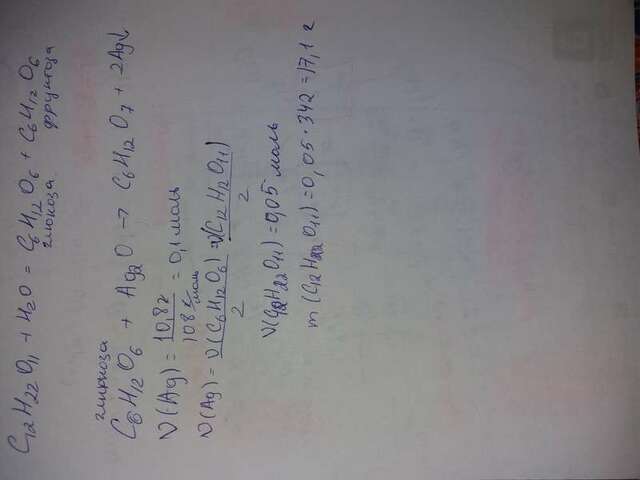 C12H22O11 + H2O = C6H12O6 + C6H12O6
глюкоза фруктоза
глюкоза
C6H12O6 + Ag2O → C6H12O7 + 2Ag↓
ν(Ag) = 10,8г / 108 г/моль = 0,1 моль
ν(Ag) = ν(C6H12O6) / 2 = ν(C12H12O11) / 2
ν(C12H22O11) = 0,05 моль
m (C12H22O11) = 0,05 · 342 = 17,1 г